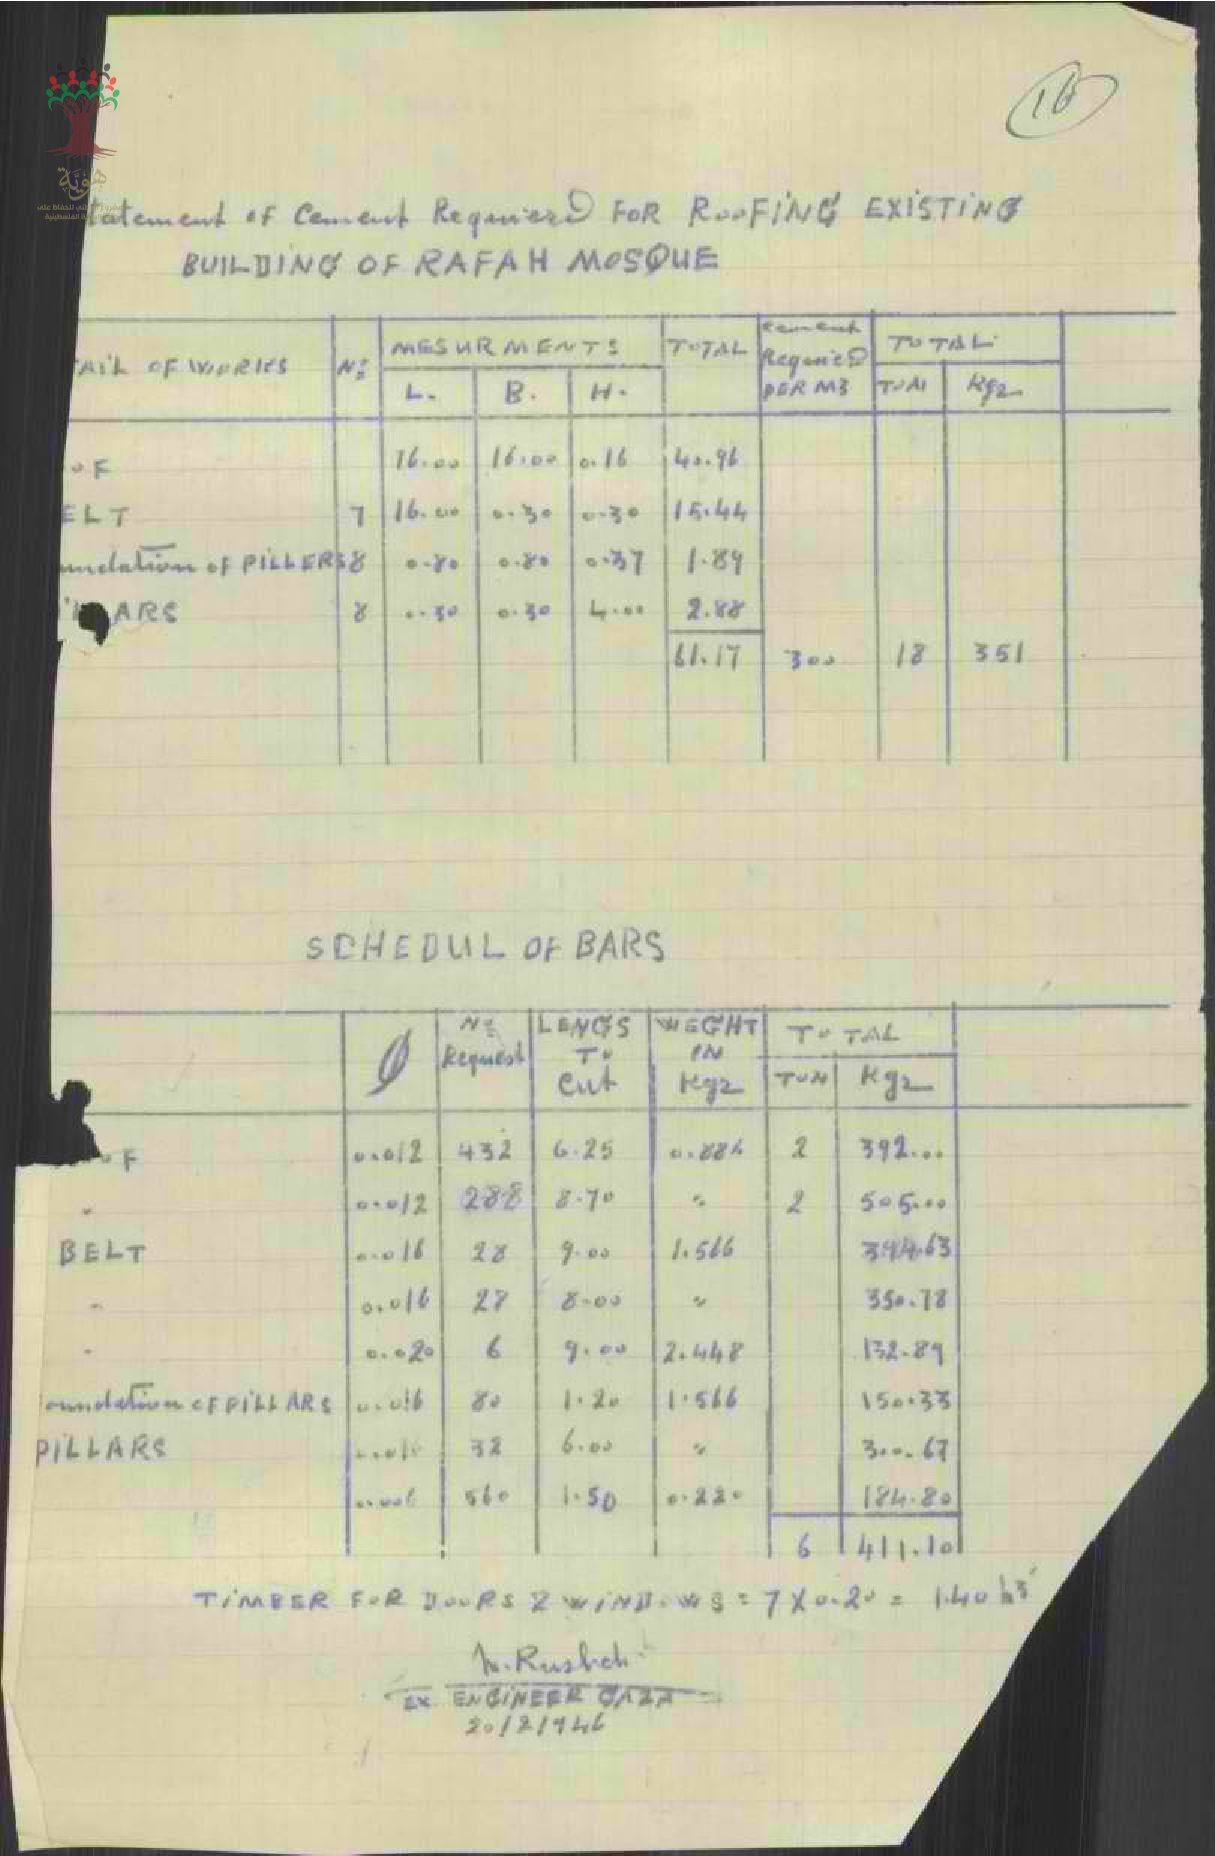 16
هوية
tatement of Cement Requiered FOR ROOFING EXISTING
BUILDING OF RAFAH MOSQUE
TAIL OF WORKS Nº MESURMENTS TOTAL Cement Requiered PER M3 TOTAL
L. B. H. TUN Kgz
OF 16.00 16.00 0.16 40.96
ELT 7 16.00 0.30 0.30 15.44
undation of PILLERS 8 0.80 0.80 0.37 1.89
ARS 8 0.30 0.30 4.00 2.88
61.17 300 18 351
SCHEDUL OF BARS
Ø Nº Request LENGS To Cut WEGHT IN Kgz TOTAL
TUN Kgz
OF 0.012 432 6.25 0.884 2 392.00
" 0.012 288 8.70 " 2 505.00
BELT 0.016 28 9.00 1.566 394.63
" 0.016 28 8.00 " 350.78
" 0.020 6 9.00 2.448 132.89
oundation OF PILLARS 0.016 80 1.20 1.566 150.33
PILLARS 0.016 32 6.00 " 300.67
0.006 560 1.50 0.220 184.80
6 411.10
TIMBER FOR DOORS & WINDOWS = 7 X 0.20 = 1.40 M3
EX ENGINEER GAZA
20/2/946